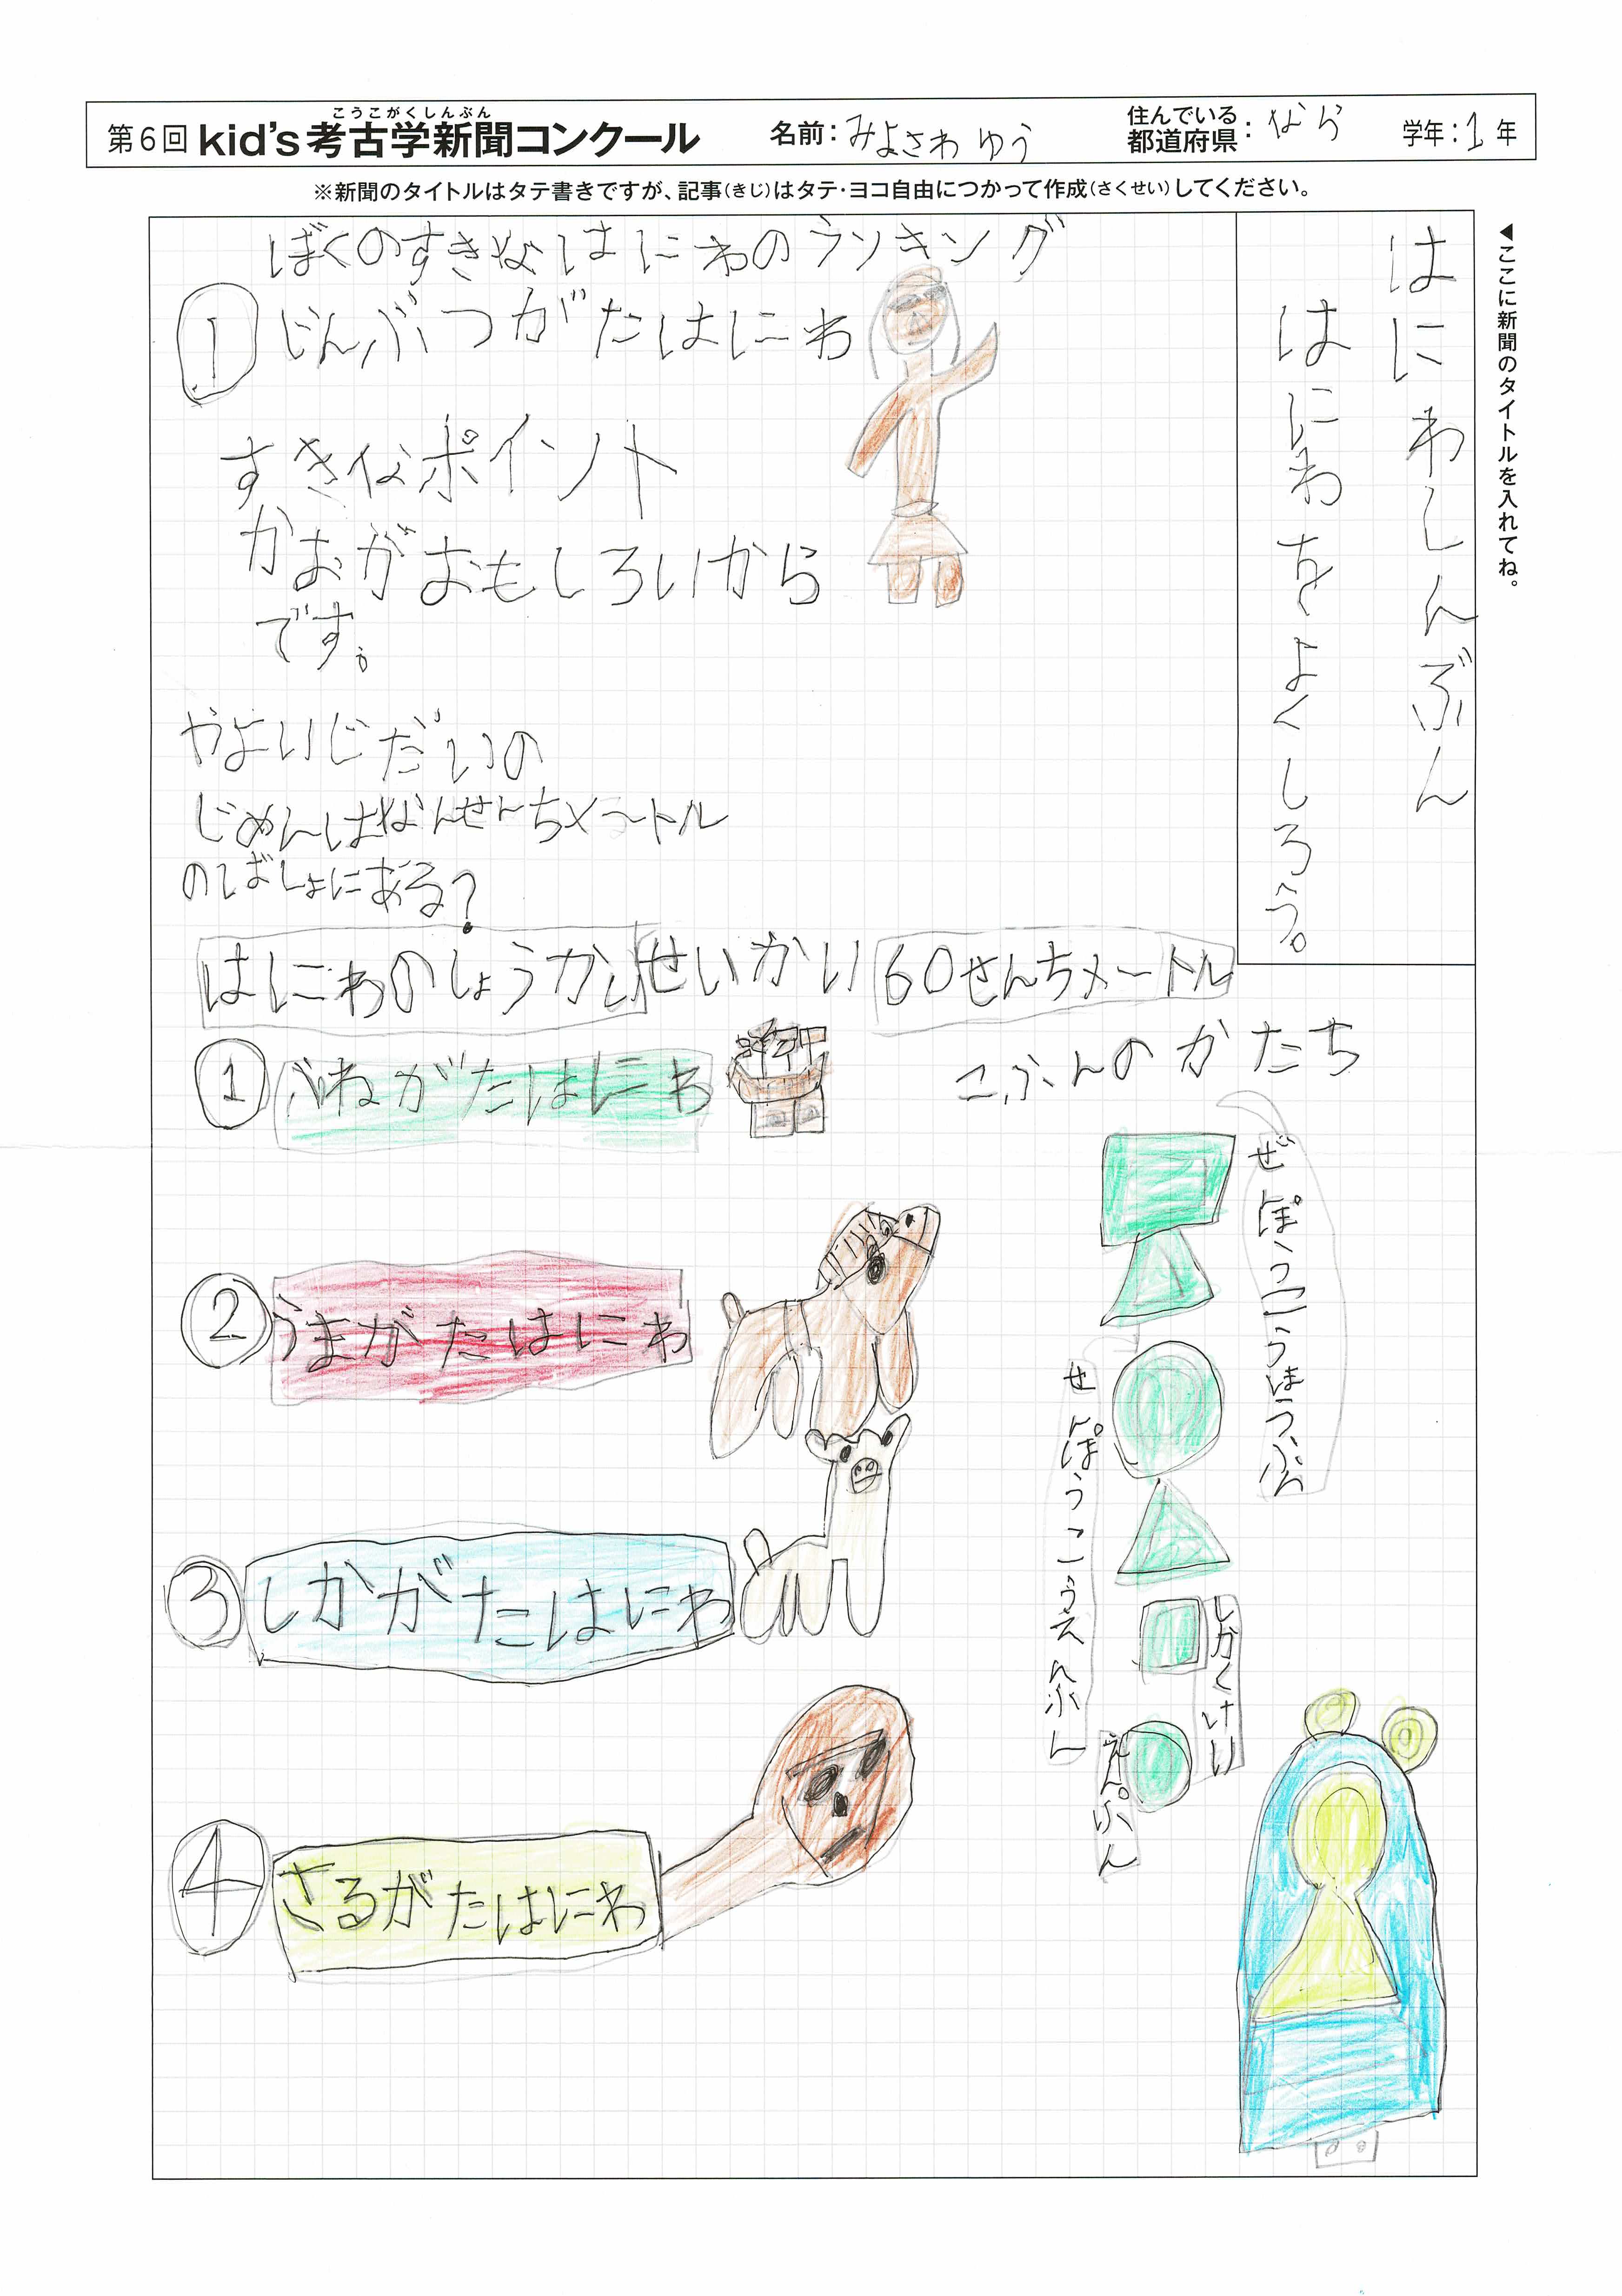 こうこがくしんぶん
第6回 kid's考古学新聞コンクール
名前：みよさわ ゆう
住んでいる都道府県：なら
学年：1年
※新聞のタイトルはタテ書きですが、記事（きじ）はタテ・ヨコ自由につかって作成（さくせい）してください。
◀ここに新聞のタイトルを入れてね。
はにわしんぶん
はにわをよくしろう。
ぼくのすきなはにわのランキング
① じんぶつがたはにわ
すきなポイント
かおがおもしろいから
です。
やよいじだいの
じめんはなんせんちメートル
のばしょにある？
せいかい 60せんちメートル
はにわのしょうかい
① ふねがたはにわ
② うまがたはにわ
③ しかがたはにわ
④ さるがたはにわ
こふんのかたち
ぜぽうこうほうふん
せんぽうこうえんふん
しかくけい
えんぷん